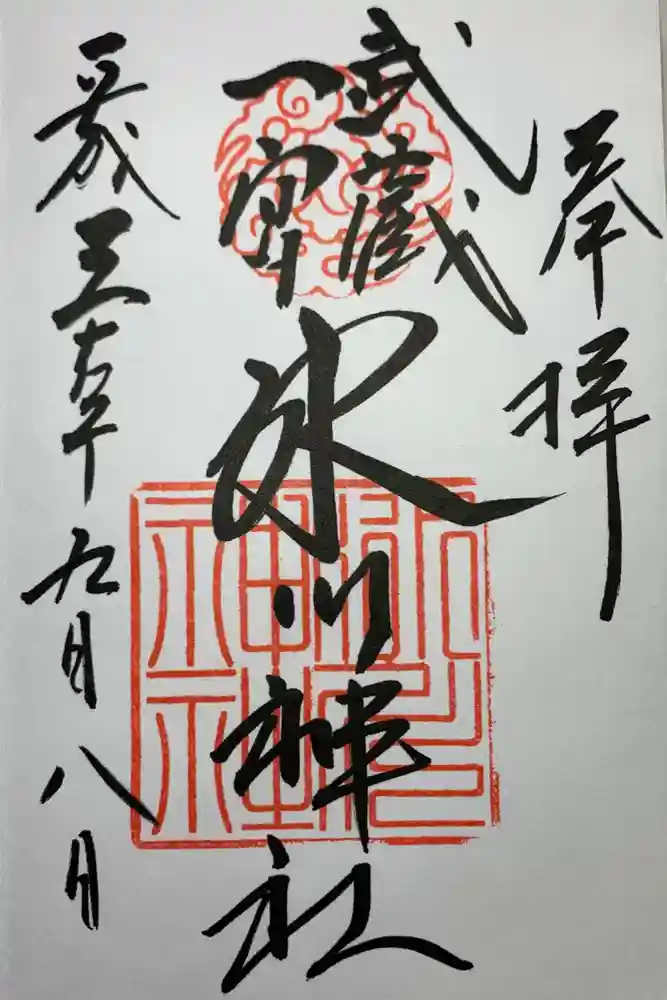 奉拝
武蔵
一宮
氷川神社
平成三十年九月八日